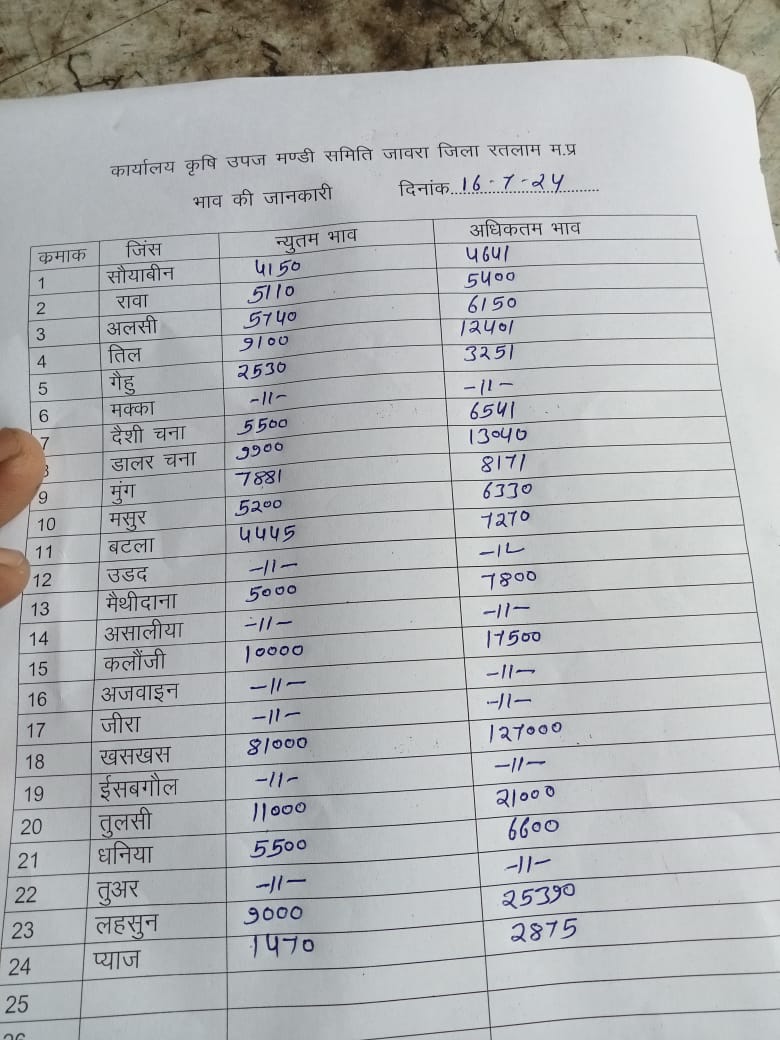 कार्यालय कृषि उपज मण्डी समिति जावरा जिला रतलाम म.प्र
भाव की जानकारी दिनांक...16-7-24...
कमाक जिंस न्युतम भाव अधिकतम भाव
1 सौयाबीन 4150 4641
2 रावा 5110 5400
3 अलसी 5740 6150
4 तिल 9100 12401
5 गैहु 2530 3251
6 मक्का -11- -11-
7 दैशी चना 5500 6541
8 डालर चना 9900 13040
9 मुंग 7881 8171
10 मसुर 5200 6330
11 बटला 4445 7270
12 उडद -11- -11
13 मैथीदाना 5000 7800
14 असालीया -11- -11-
15 कलौंजी 10000 17500
16 अजवाइन -11- -11-
17 जीरा -11- -11-
18 खसखस 81000 127000
19 ईसबगौल -11- -11-
20 तुलसी 11000 21000
21 धनिया 5500 6600
22 तुअर -11- -11-
23 लहसुन 9000 25390
24 प्याज 1470 2875
25